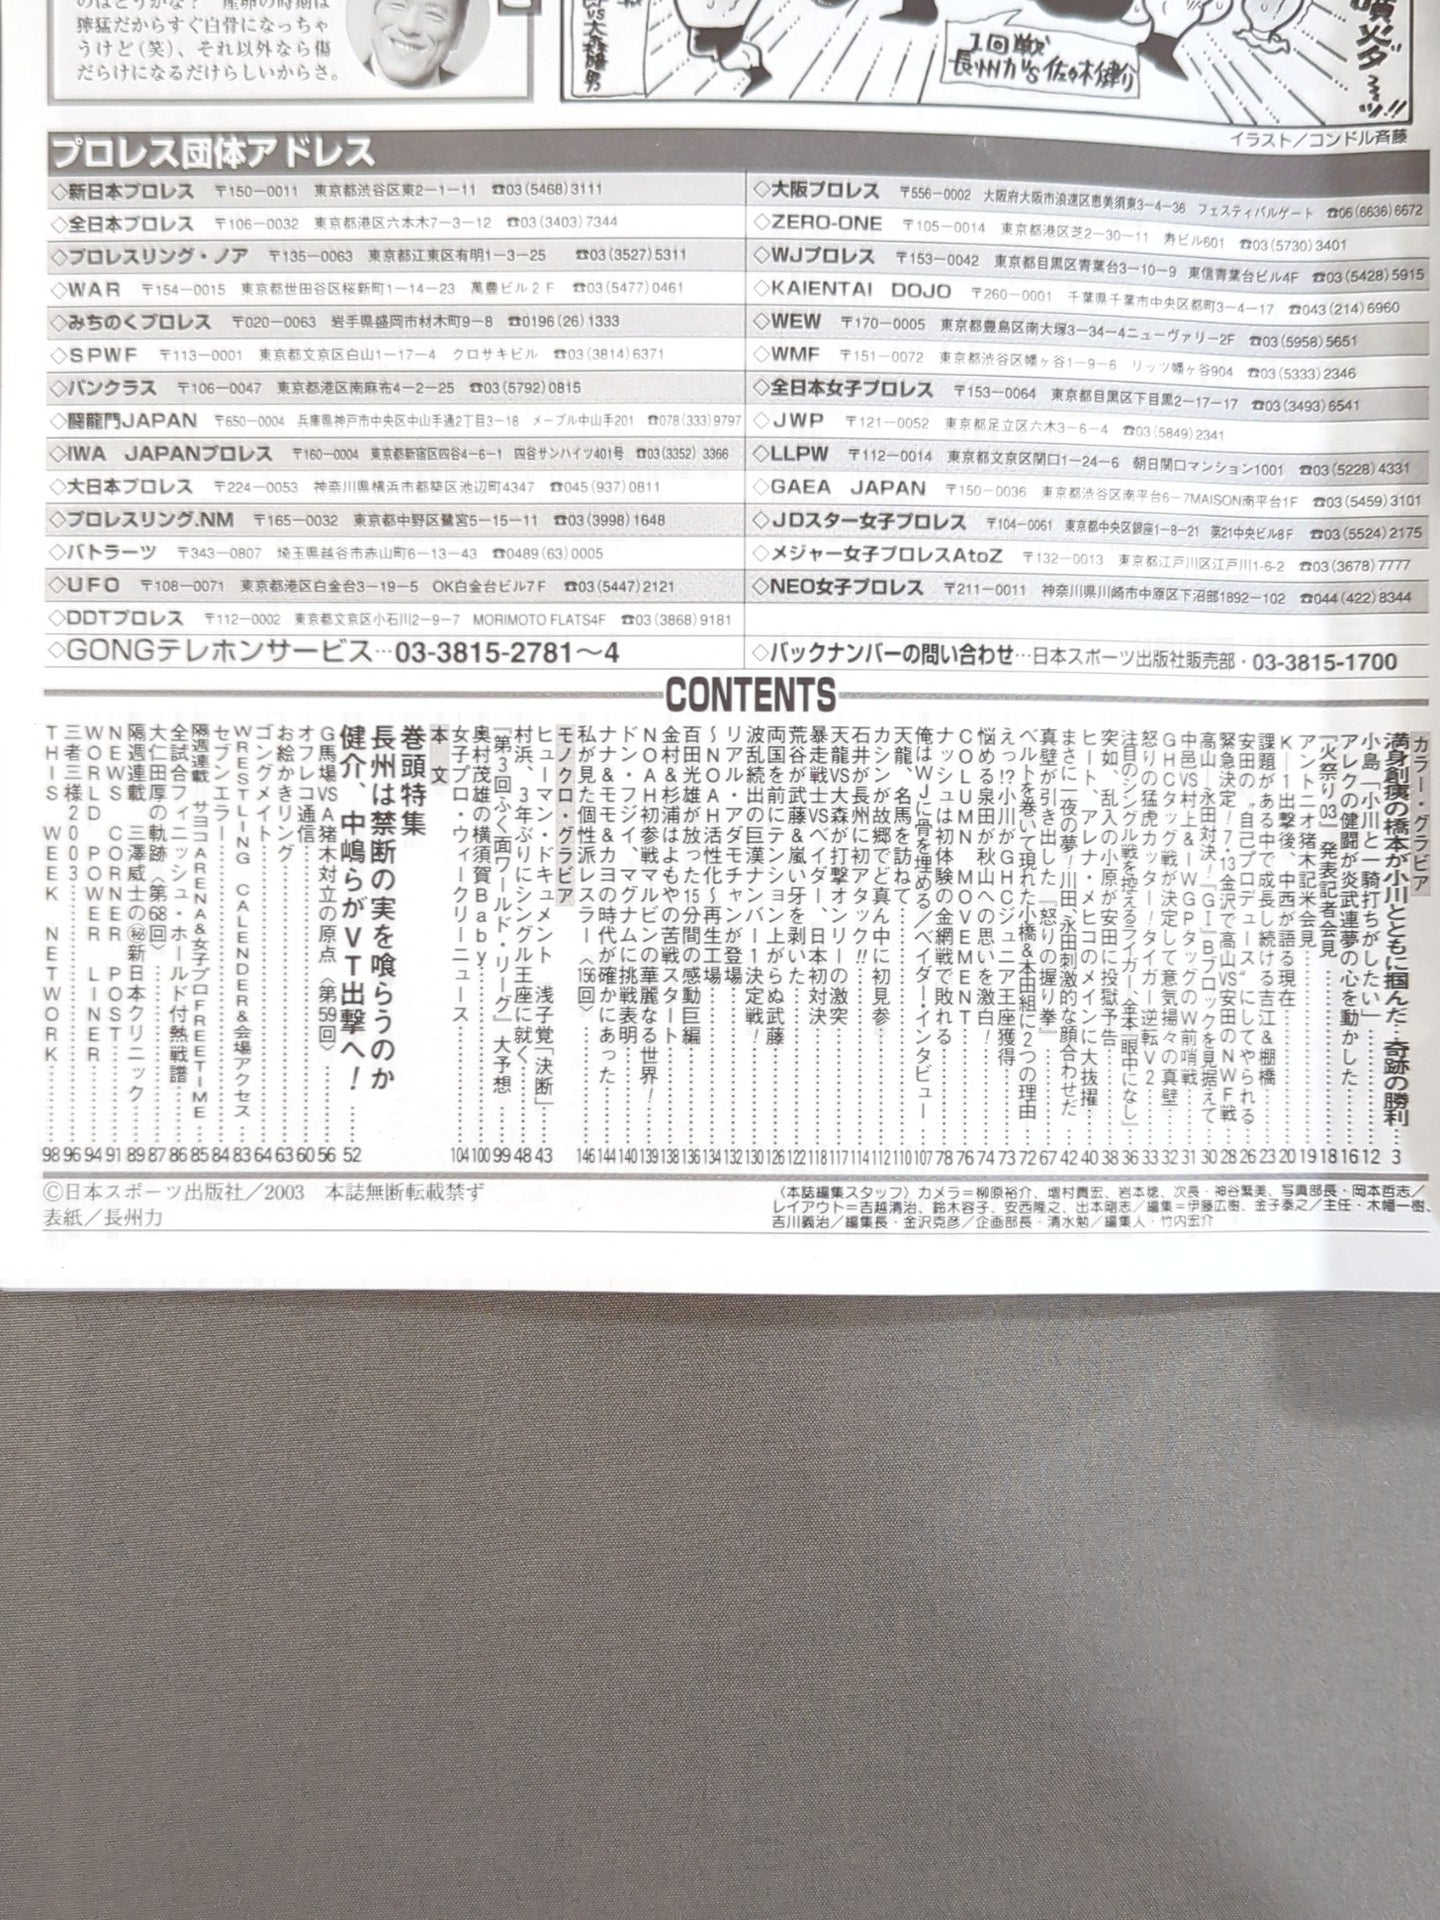 獰猛だからすぐ白骨になっちゃ
うけど(笑)、それ以外なら傷
だらけになるだけらしいからさ。
1回戦
長州力VS佐々木健介
イラスト／コンドル斉藤
プロレス団体アドレス
◇新日本プロレス 〒150-0011 東京都渋谷区東2-1-11 ☎03(5468)3111
◇全日本プロレス 〒106-0032 東京都港区六本木7-3-12 ☎03(3403)7344
◇プロレスリング・ノア 〒135-0063 東京都江東区有明1-3-25 ☎03(3527)5311
◇WAR 〒154-0015 東京都世田谷区桜新町1-14-23 萬豊ビル2F ☎03(5477)0461
◇みちのくプロレス 〒020-0063 岩手県盛岡市材木町9-8 ☎0196(26)1333
◇SPWF 〒113-0001 東京都文京区白山1-17-4 クロサキビル ☎03(3814)6371
◇パンクラス 〒106-0047 東京都港区南麻布4-2-25 ☎03(5792)0815
◇闘龍門JAPAN 〒650-0004 兵庫県神戸市中央区中山手通2丁目3-18 メープル中山手201 ☎078(333)9797
◇IWA JAPANプロレス 〒160-0004 東京都新宿区四谷4-6-1 四谷サンハイツ401号 ☎03(3352)3366
◇大日本プロレス 〒224-0053 神奈川県横浜市都築区池辺町4347 ☎045(937)0811
◇プロレスリング.NM 〒165-0032 東京都中野区鷺宮5-15-11 ☎03(3998)1648
◇バトラーツ 〒343-0807 埼玉県越谷市赤山町6-13-43 ☎0489(63)0005
◇UFO 〒108-0071 東京都港区白金台3-19-5 OK白金台ビル7F ☎03(5447)2121
◇DDTプロレス 〒112-0002 東京都文京区小石川2-9-7 MORIMOTO FLATS4F ☎03(3868)9181
◇GONGテレホンサービス…03-3815-2781〜4
◇大阪プロレス 〒556-0002 大阪府大阪市浪速区恵美須東3-4-36 フェスティバルゲート ☎06(6636)6672
◇ZERO-ONE 〒105-0014 東京都港区芝2-30-11 寿ビル601 ☎03(5730)3401
◇WJプロレス 〒153-0042 東京都目黒区青葉台3-10-9 東信青葉台ビル4F ☎03(5428)5915
◇KAIENTAI DOJO 〒260-0001 千葉県千葉市中央区都町3-4-17 ☎043(214)6960
◇WEW 〒170-0005 東京都豊島区南大塚3-34-4ニューヴァリー2F ☎03(5958)5651
◇WMF 〒151-0072 東京都渋谷区幡ヶ谷1-9-6 リッツ幡ヶ谷904 ☎03(5333)2346
◇全日本女子プロレス 〒153-0064 東京都目黒区下目黒2-17-17 ☎03(3493)6541
◇JWP 〒121-0052 東京都足立区六木3-6-4 ☎03(5849)2341
◇LLPW 〒112-0014 東京都文京区関口1-24-6 朝日関口マンション1001 ☎03(5228)4331
◇GAEA JAPAN 〒150-0036 東京都渋谷区南平台6-7MAISON南平台1F ☎03(5459)3101
◇JDスター女子プロレス 〒104-0061 東京都中央区銀座1-8-21 第21中央ビル8F ☎03(5524)2175
◇メジャー女子プロレスAtoZ 〒132-0013 東京都江戸川区江戸川1-6-2 ☎03(3678)7777
◇NEO女子プロレス 〒211-0011 神奈川県川崎市中原区下沼部1892-102 ☎044(422)8344
◇バックナンバーの問い合わせ…日本スポーツ出版社販売部・03-3815-1700
CONTENTS
カラー・グラビア
満身創痍の橋本が小川とともに掴んだ…奇跡の勝利…3
小島「小川と一騎打ちがしたい」…12
アレクの健闘が炎武連夢の心を動かした…16
『火祭り03』発表記者会見…18
アントニオ猪木記米会見…19
K-1出撃後、中西が語る現在…20
課題がある中で成長し続ける吉江&棚橋…23
安田の“自己プロデュース”にしてやられる…26
緊急決定！7・13金沢で高山VS安田のNWF戦…28
高山-永田対決！『G1』Bブロックを見据えて…30
中邑VS村上&IWGPタッグのW前哨戦…31
GHCタッグ戦が決定して意気揚々の真壁…32
怒りの猛虎カッター！タイガー逆転V2…33
注目のシングル戦を控えるライガー、金本「眼中になし」…36
突如、乱入の小原が安田に投獄予告…38
ヒート、アレナ・メヒコのメインに大抜擢…40
まさに一夜の夢！川田、永田刺激的な顔合わせだ…42
真壁が引き出した『怒りの握り拳』…67
ベルトを巻いて現れた小橋&本田組に2つの理由…72
えっ!?小川がGHCジュニア王座獲得…73
悩める泉田が秋山への思いを激白！…74
COLUMN MOVEMENT…76
ナッシュは初体験の金網戦で敗れる…78
俺はWJに骨を埋める／ベイダーインタビュー…107
天龍、名馬を訪ねて…110
カシンが故郷でど真ん中に初見参…112
石井が長州に初アタック!!…114
天龍VS大森が打撃オンリーの激突…117
暴走戦士VSベイダー、日本初対決…118
荒谷が武藤&嵐い牙を剥いた…122
両国を前にテンション上がらぬ武藤…126
波乱続出の巨漢ナンバー1決定戦！…130
リアル・アダモチャンが登場…132
〜NOAH活性化〜再生工場…134
百田光雄が放った15分間の感動巨編…136
金村&杉浦はよもやの苦戦スタート…138
NOAH初参戦マルビンの華麗なる世界！…139
ドン・フジイ、マグナムに挑戦表明…140
ナナ&モモ&カヨの時代が確かにあった…144
私が見た個性派レスラー〈156回〉…146
モノクロ・グラビア
ヒューマン・ドキュメント 浅子覚「決断」…43
村浜、3年ぶりにシングル王座に就く…48
『第3回ふく面ワールド・リーグ』大予想…99
奥村茂雄の横須賀Baby…100
女子プロ・ウィークリーニュース…104
本文
巻頭特集
長州は禁断の実を喰らうのか
健介、中嶋らがVT出撃へ！…52
G馬場VSA猪木対立の原点〈第59回〉…56
オフレコ通信…60
お絵かきリング…63
ゴングメイト…64
WRESTLING CALENDER&会場アクセス…83
セブンエラー…84
隔週連載 サヨコARENA&女子プロFREETIME…85
全試合フィニッシュ・ホールド付熱戦譜…86
大仁田厚の軌跡〈第68回〉…87
隔週連載 三澤威士の㊙新日本クリニック…89
NEWS CORNER POST…91
WORLD POWER LINER…94
三者三様2003…96
THIS WEEK NETWORK…98
©日本スポーツ出版社／2003 本誌無断転載禁ず
表紙／長州力
〈本誌編集スタッフ〉カメラ=柳原裕介、増村貴宏、岩本稔、次長・神谷繁美、写真部長・岡本哲志／
レイアウト=吉越清治、鈴木容子、安西隆之、出本剛志／編集=伊藤広樹、金子泰之／主任・木幡一樹、
吉川義治／編集長・金沢克彦／企画部長・清水勉／編集人・竹内宏介